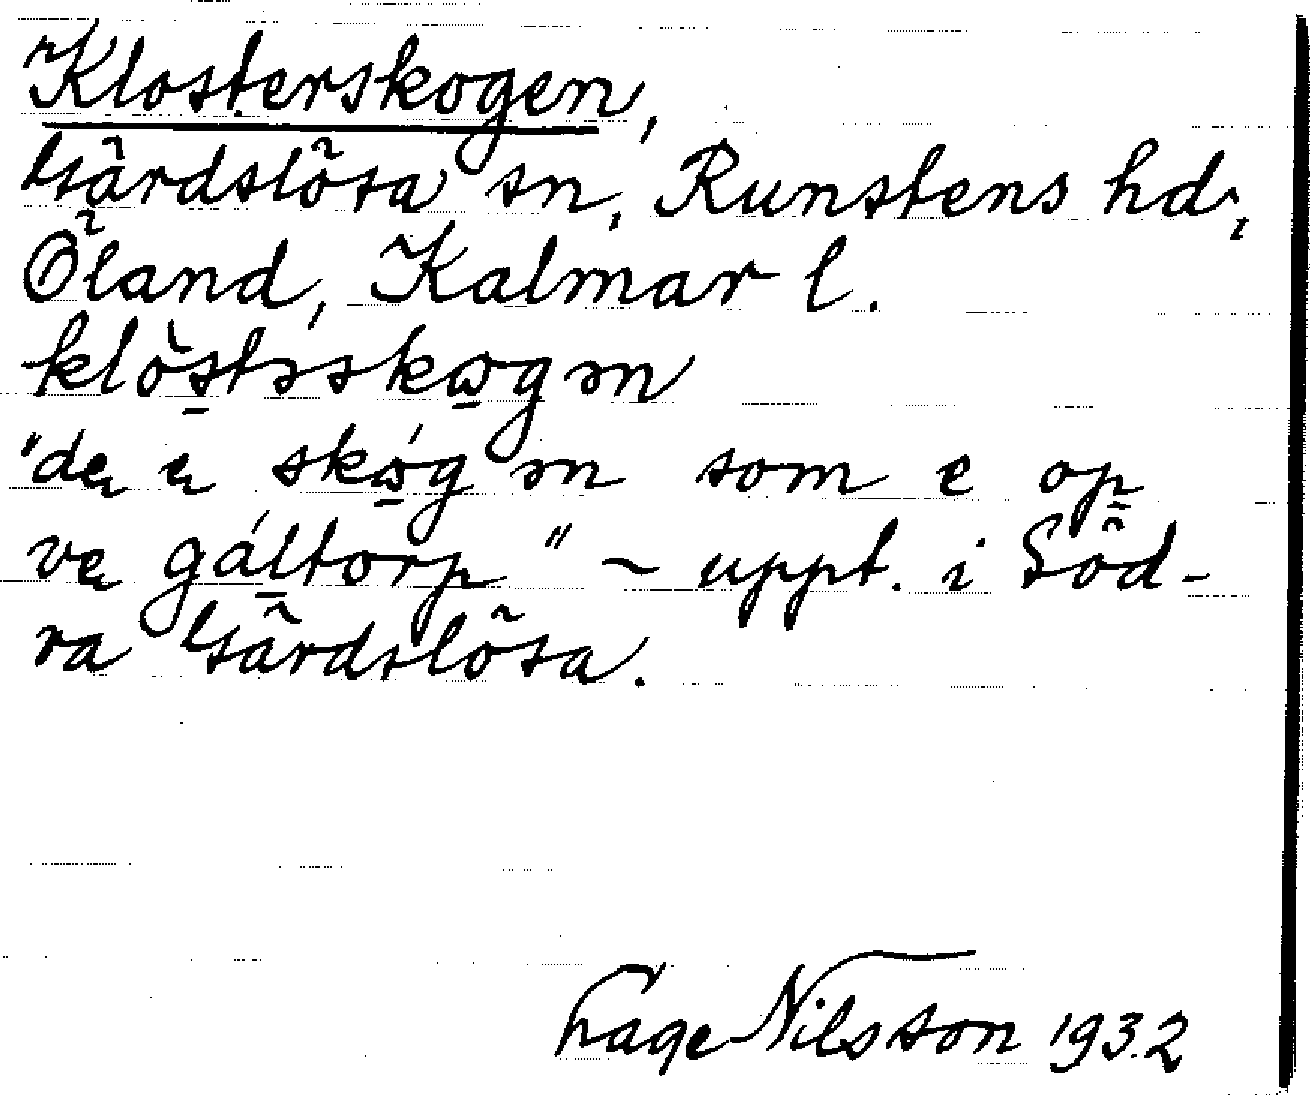 Klosterskogen,
Gärdslösa sn, Runstens hd,
Öland, Kalmar l.
klòs̱təskω̱gən
"dę ę skώ̱gən som e op
vę gáḻtorp" ~ uppt. i Söd-
ra Gärdslösa.
Tage Nilsson 1932